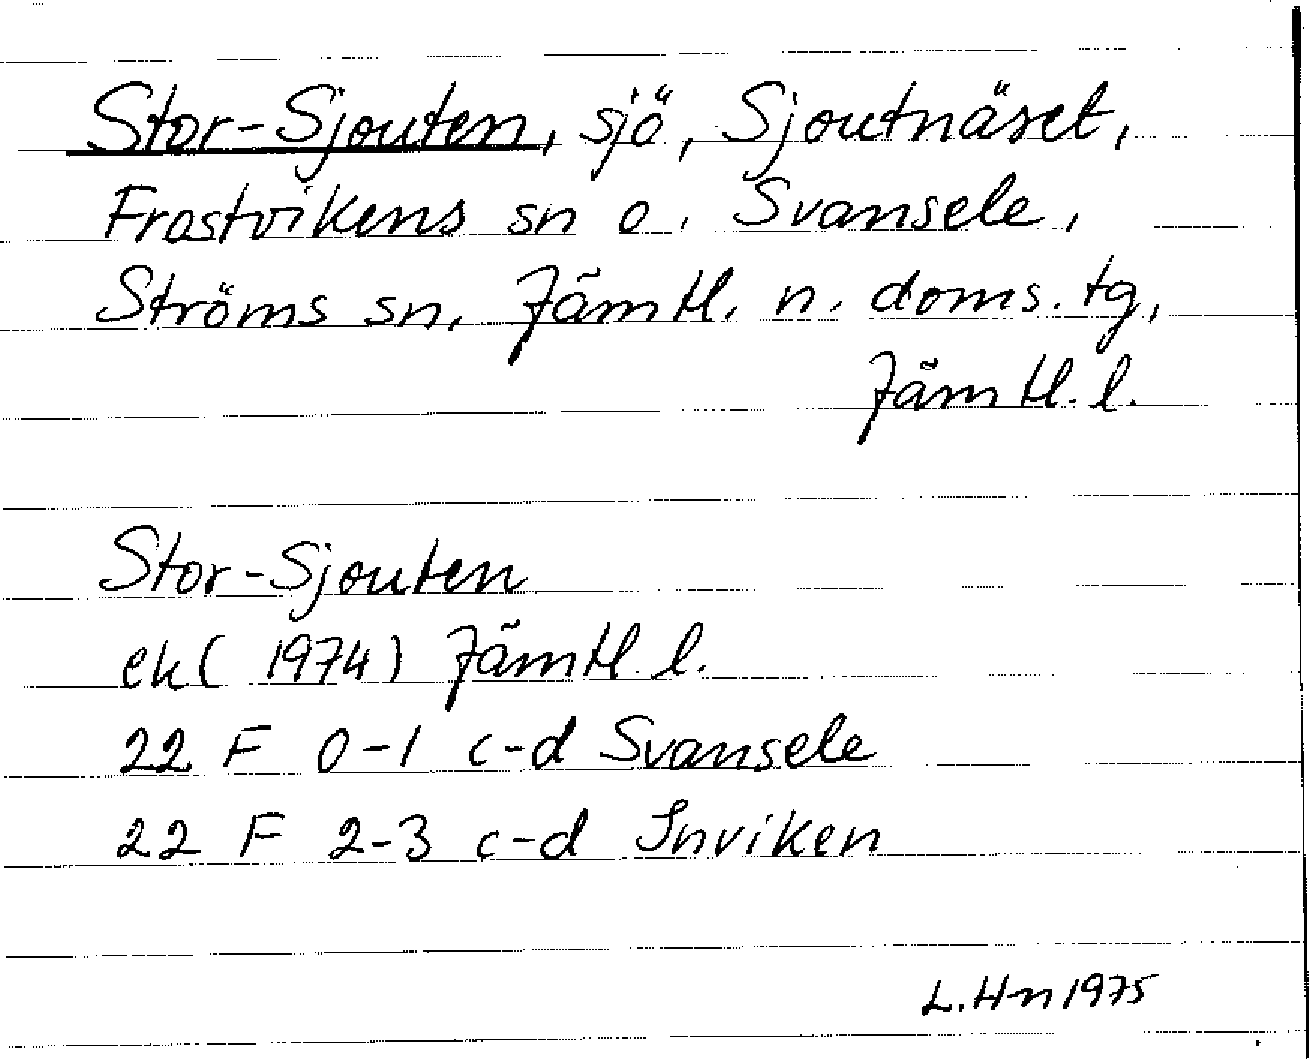 Stor-Sjouten, sjö, Sjoutnäset,
Frostvikens sn o. Svansele,
Ströms sn, Jämtl. n. doms. tg,
Jämtl. l.
Stor-Sjouten
ek (1974) Jämtl. l.
22 F 0-1 c-d Svansele
22 F 2-3 c-d Inviken
L. H-n 1975